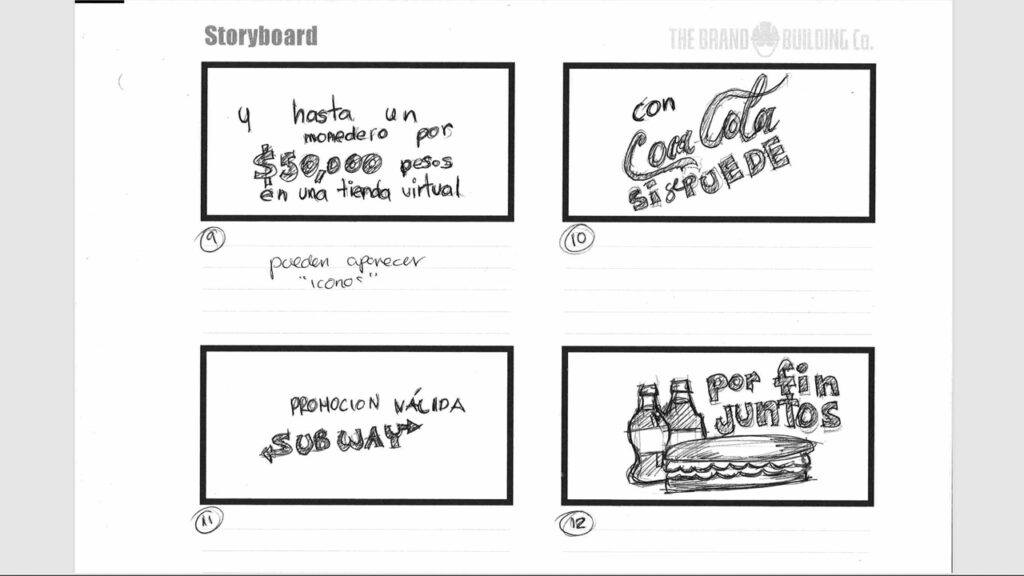 Storyboard
THE BRAND BUILDING Co.
y hasta un
monedero por
$50,000 pesos
en una tienda virtual
9
pueden aparecer
"iconos"
con
Coca-Cola
SI SE PUEDE
10
PROMOCION VÁLIDA
SUBWAY
11
por fin
JUNTOS
12